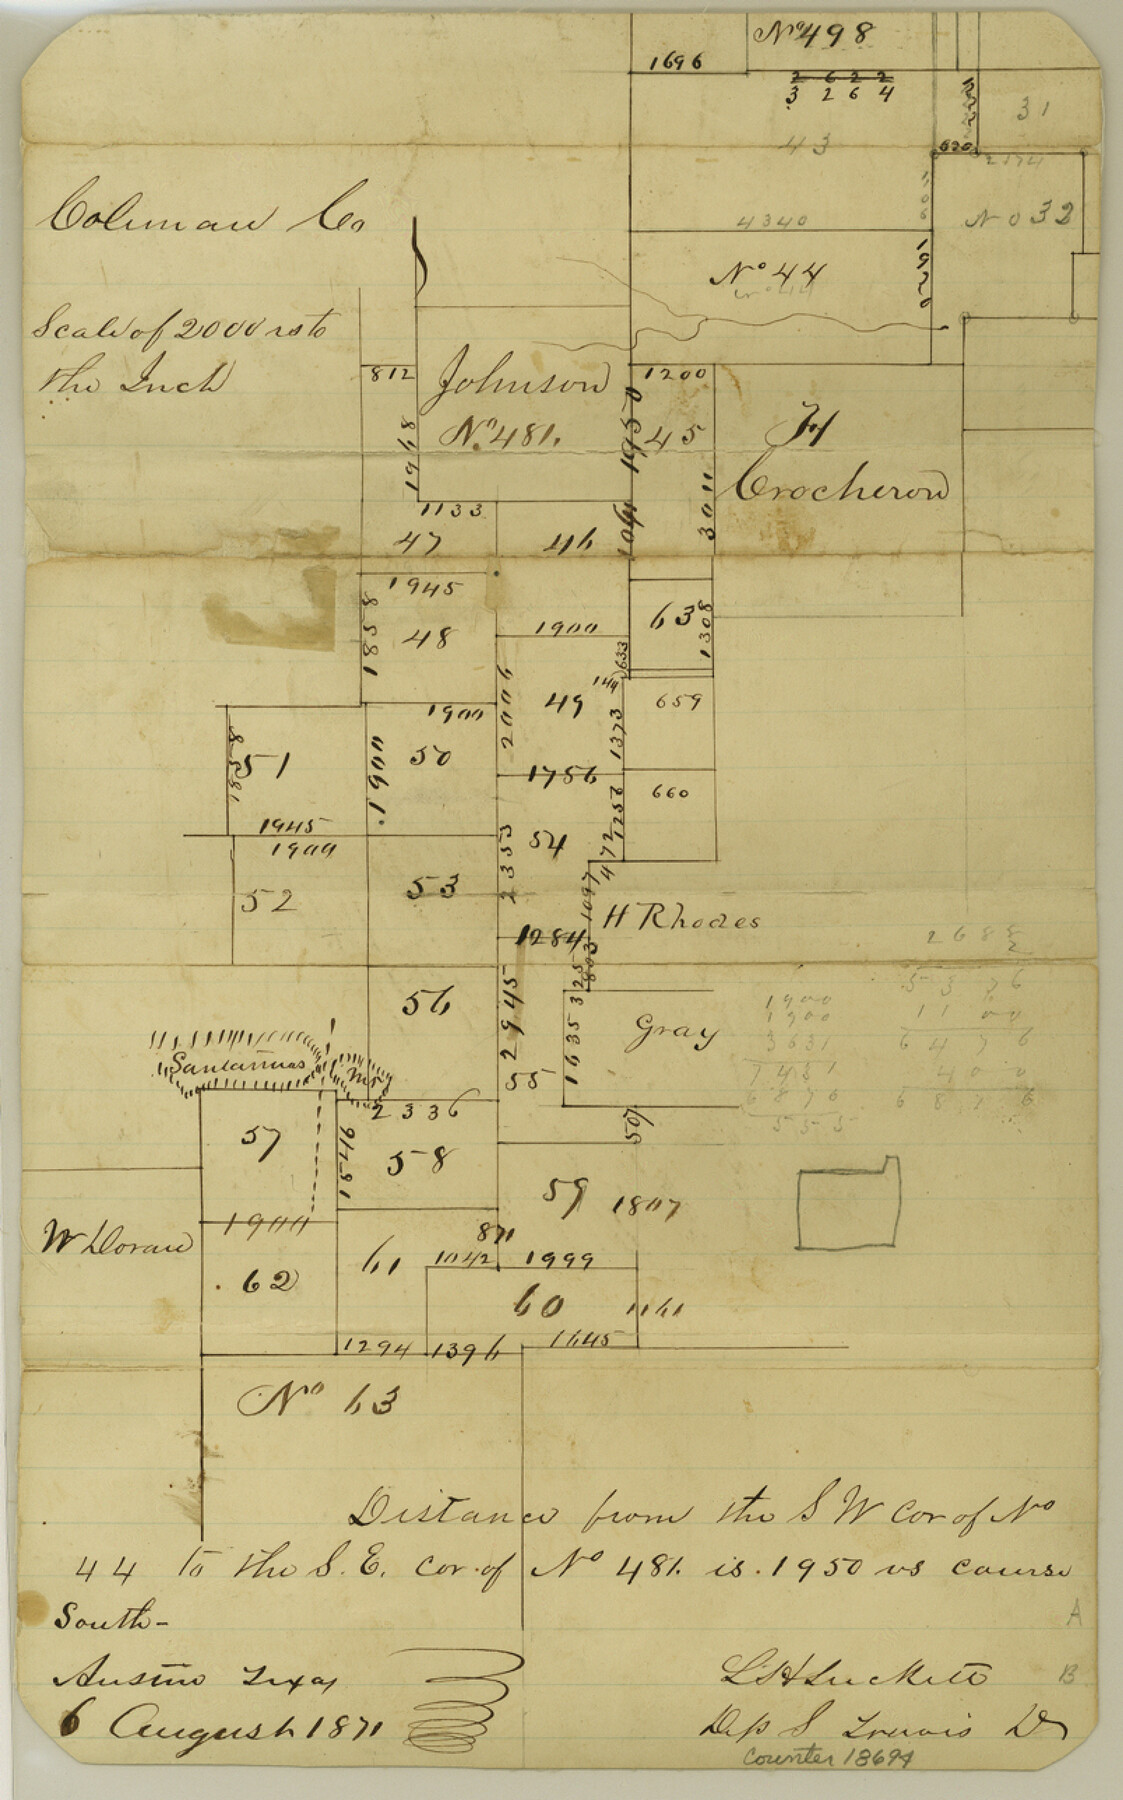 No 498
1696
2 6 2 2
3 2 6 4
31
43
620
2574
Coleman Co
4340
No 32
No 44
1920
Scale of 2000 vs to
the Inch
812
Johnson
No. 481.
1948
1200
1950
45
3011
H
Crocheron
1133
47
46
1061
1945
1858
48
1900
633
63
1308
144
49
2006
1373
659
1900
50
51
1858
1900
1756
1256
660
1945
1900
54
472
2353
52
53
1097
H Rhodes
1284
803
325
56
2945
1635
Gray
55
2688
2
5376
1100
6476
400
6876
1900
1900
3631
7431
6876
555
Santannas
Mts
2336
57
1946
58
507
59
1807
W Doran
1900
871
61
1042
1999
62
60
1161
1294
1396
1645
No 63
Distance from the S W Cor of No
44 to the S. E. cor. of No 481. is. 1950 vs course
South-
Austin Texas
6 August 1871
L S H Luckett
Dep S Travis D
A
B
Counter 13694